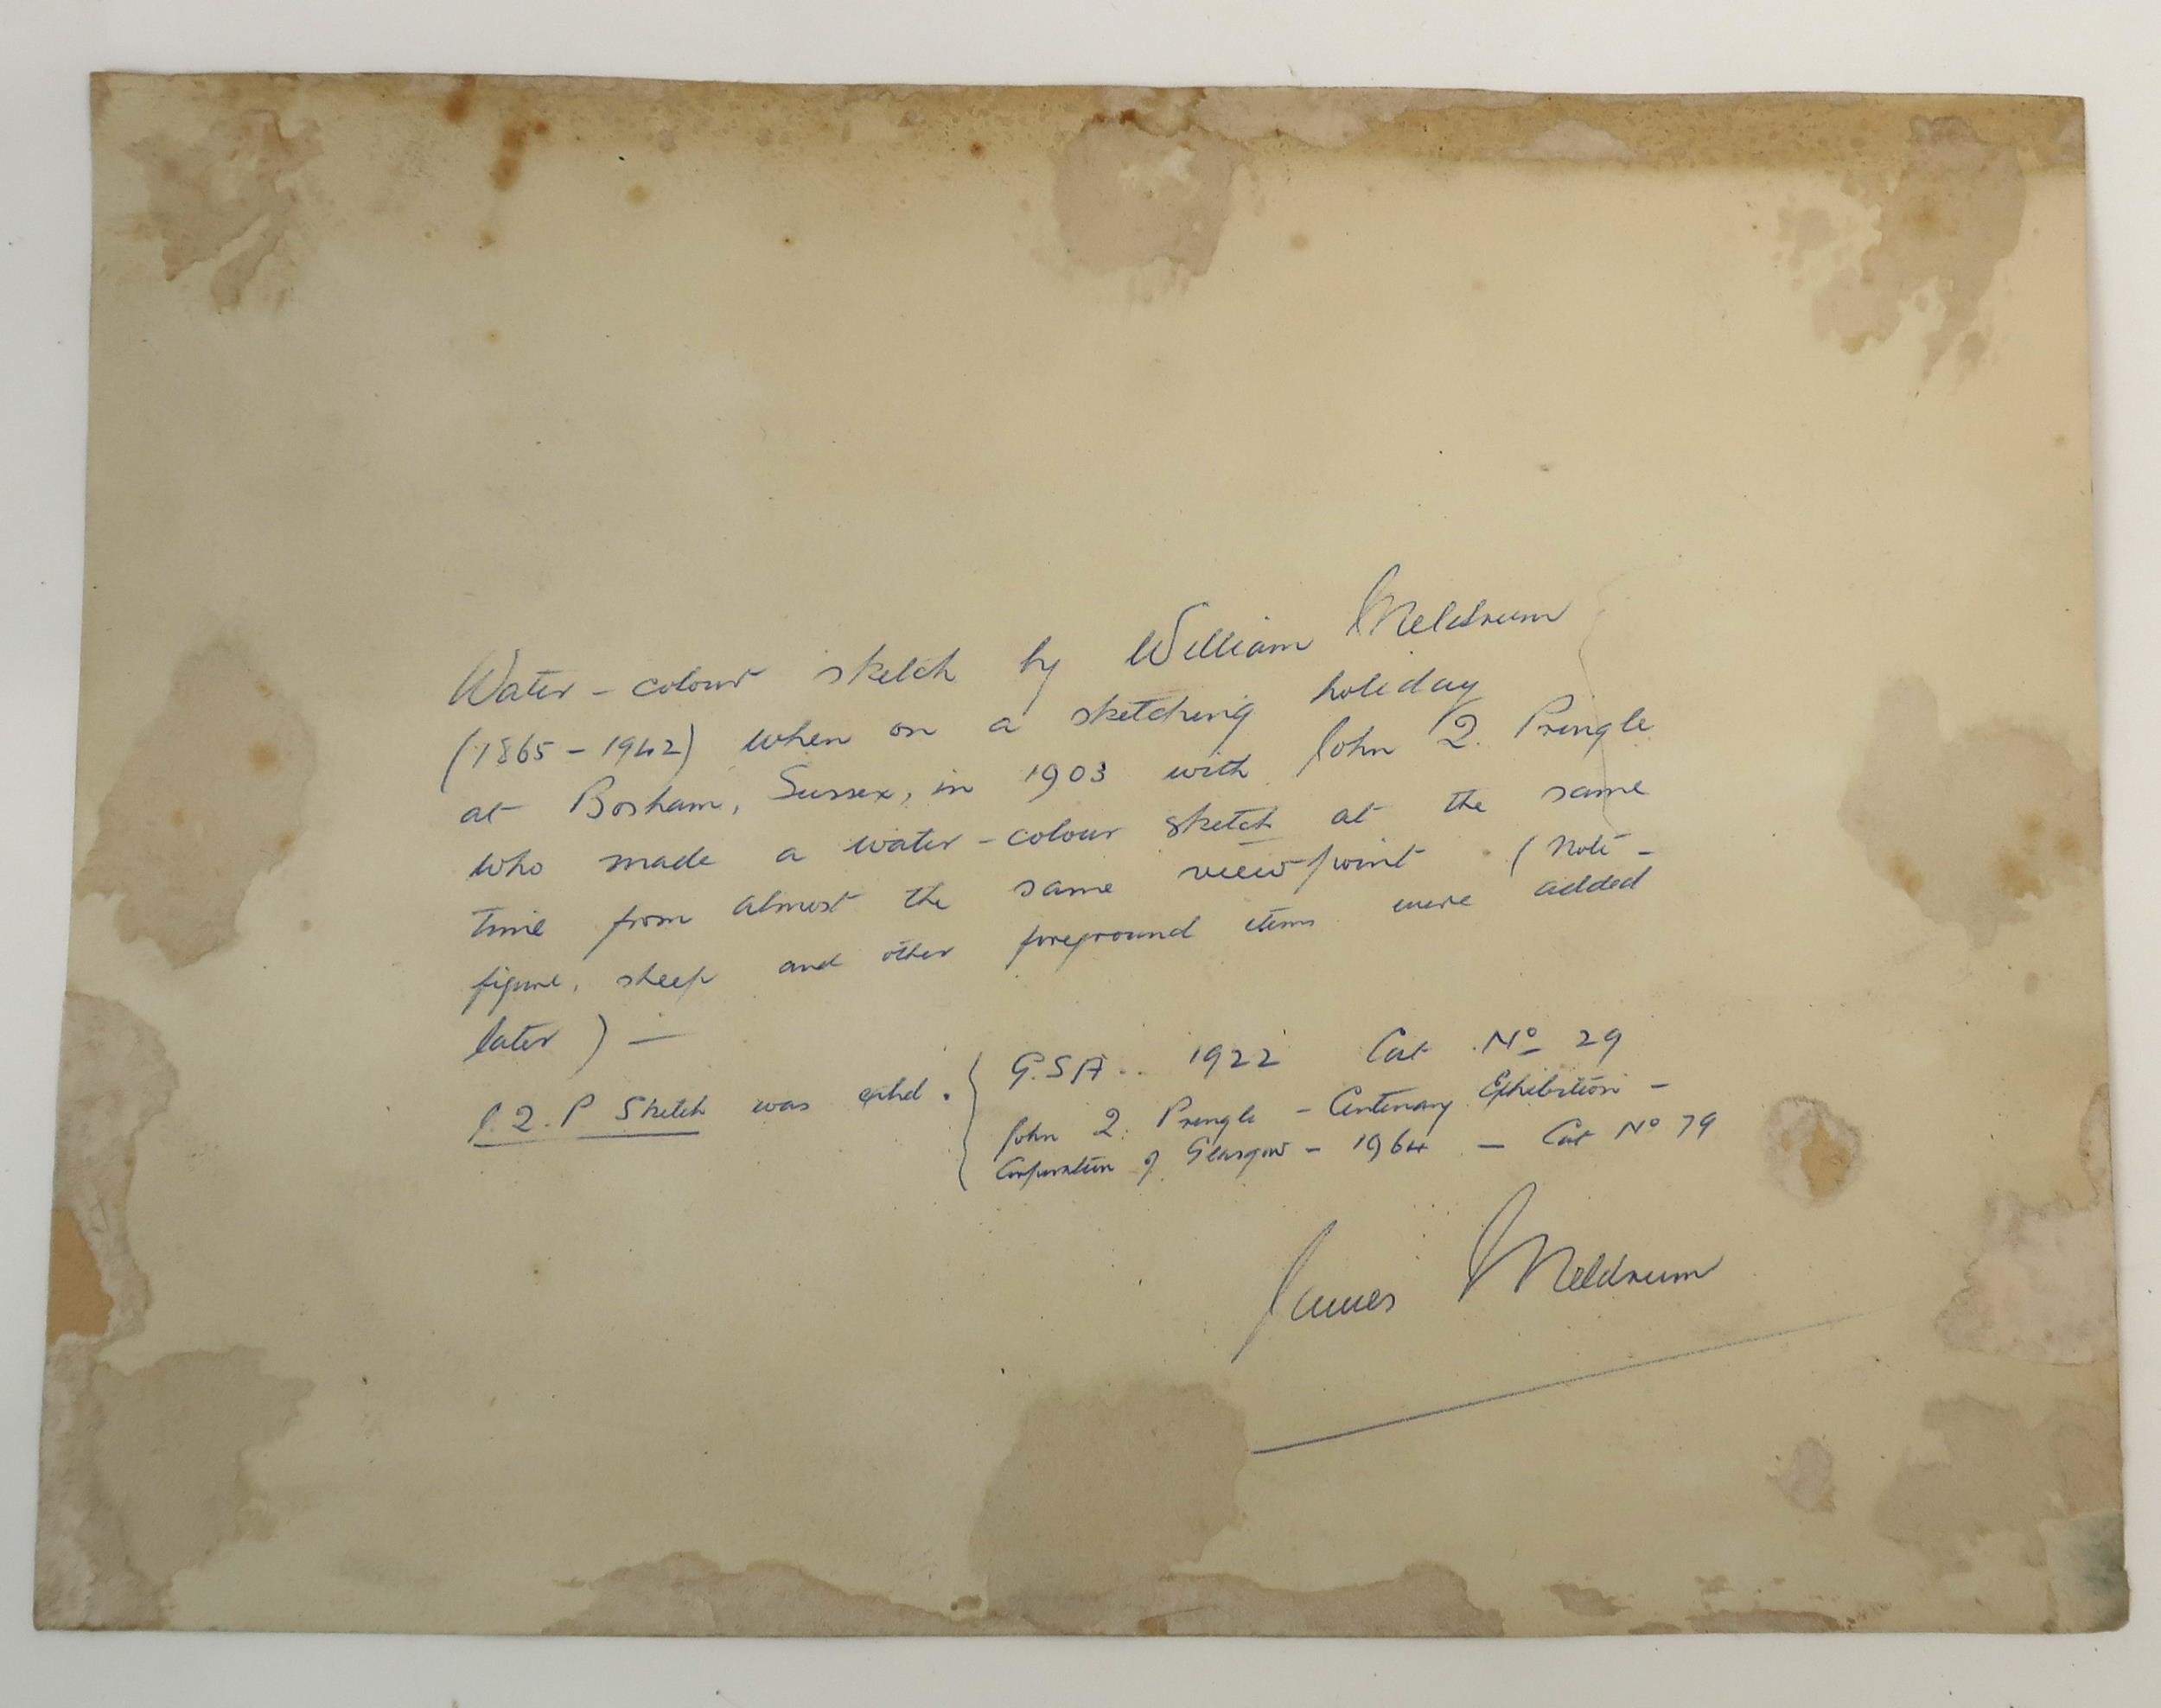 Water-colour sketch by William Meldrum
(1865-1942) when on a sketching holiday
at Bosham, Sussex, in 1903 with John Q. Pringle
who made a water-colour sketch at the same
time from almost the same viewpoint (Note -
figure, sheep and other foreground items were added
later) —
J.Q.P Sketch was exhd. { G.S.A.. 1922 Cat No 29
John Q. Pringle - Centenary Exhibition -
Corporation of Glasgow - 1964 - Cat No 79
James Meldrum